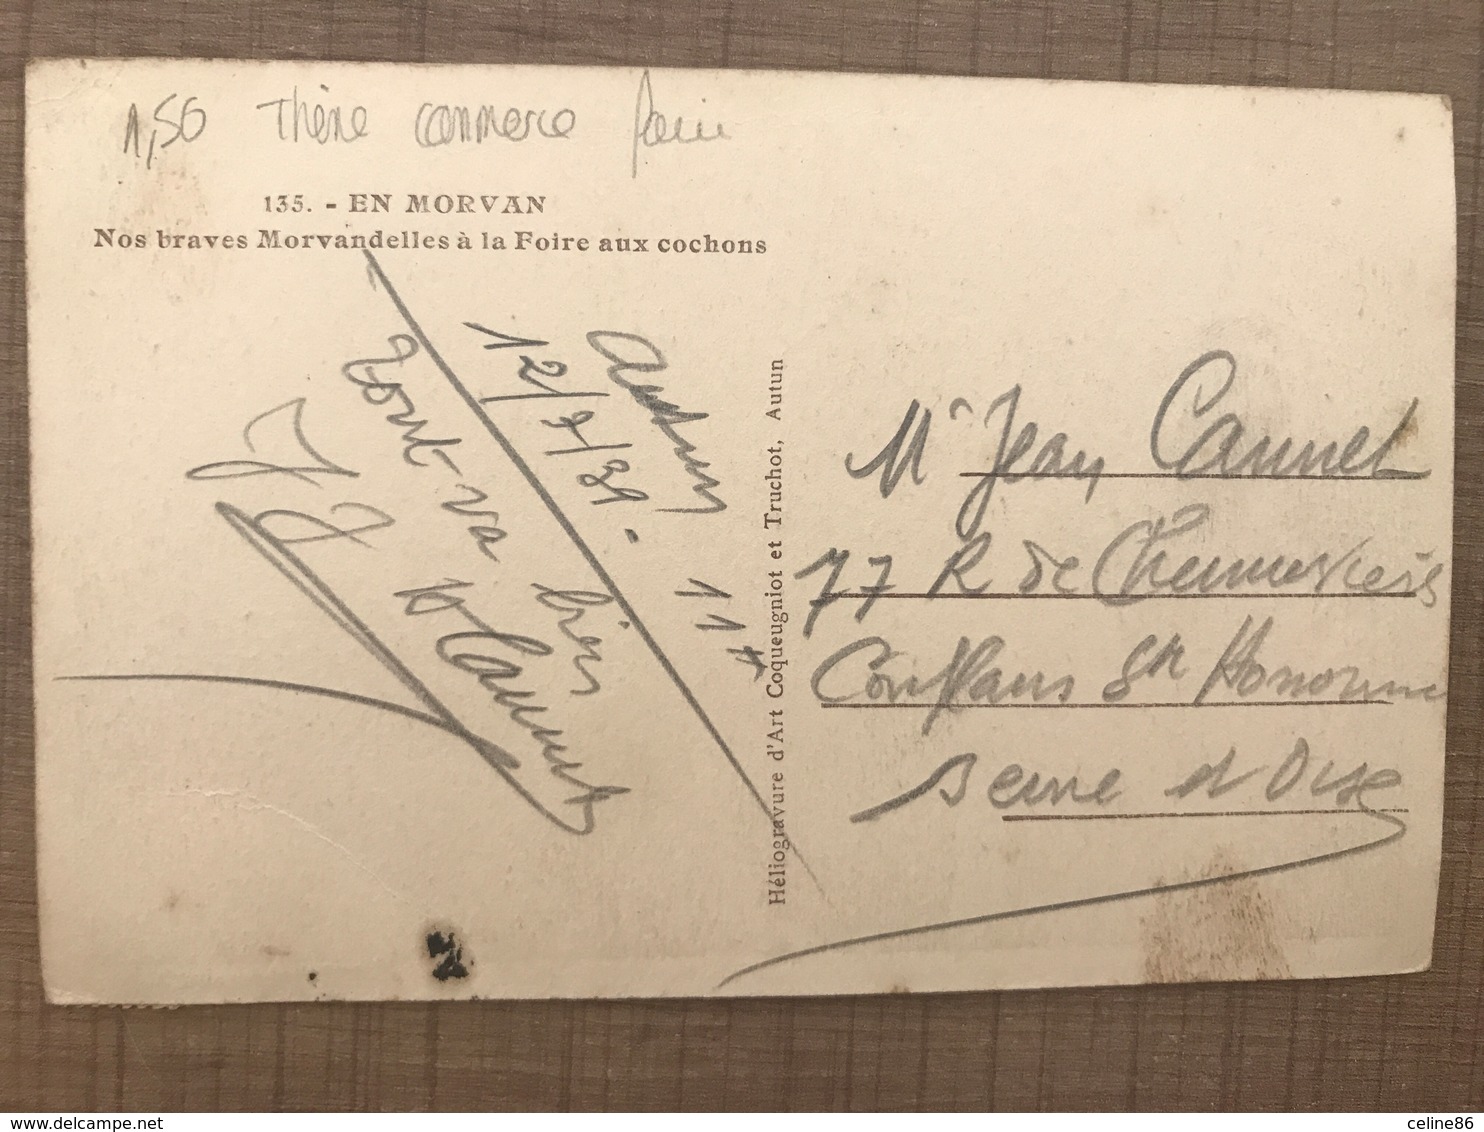 1,50 Thème commerce foire
135. - EN MORVAN
Nos braves Morvandelles à la Foire aux cochons
Autun
12/9/39.
11 H
Tout va bien
Cannet
Héliogravure d'Art Coqueugniot et Truchot, Autun
Mr Jean Cannet
77 R de Chennevières
Conflans Ste Honorine
Seine et Oise
delcampe.net
celine86